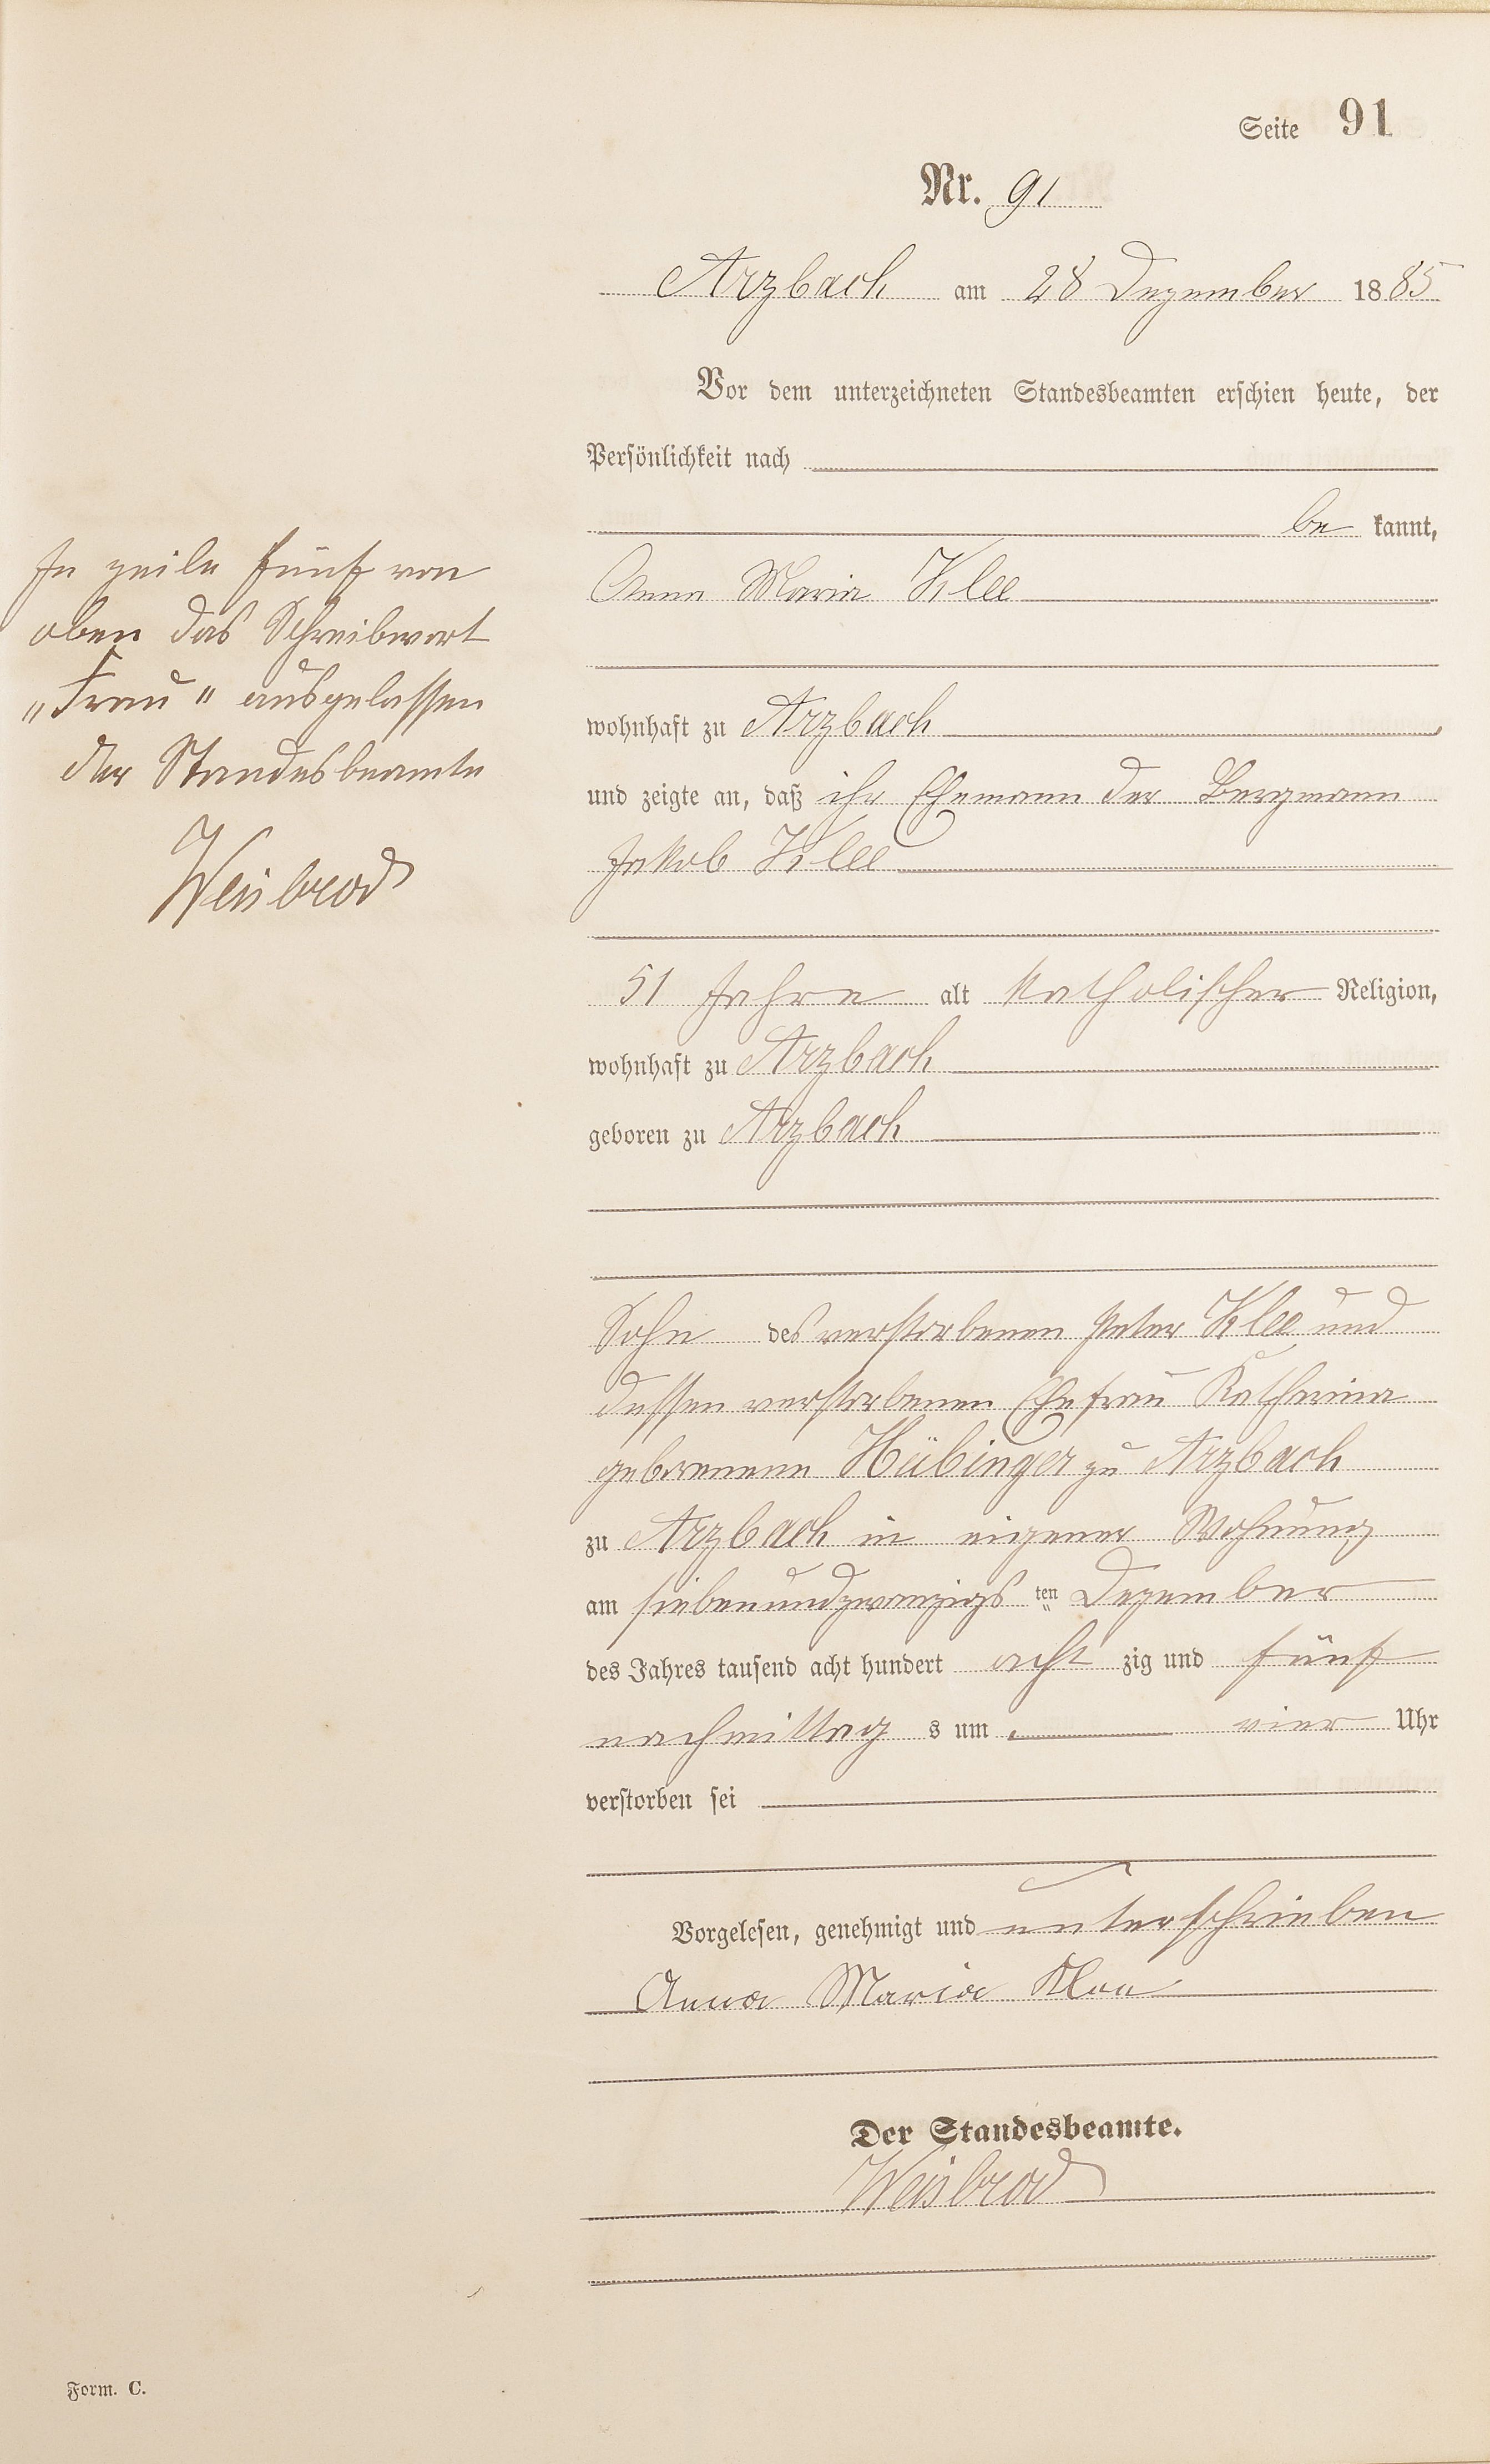 Seite 91
Nr. 91
Arzbach am 28 Dezember 1885
Vor dem unterzeichneten Standesbeamten erschien heute, der
Persönlichkeit nach
be kannt,
Anna Maria Klee
wohnhaft zu Arzbach
und zeigte an, daß ihr Ehemann der Bergmann
Jakob Klee
51 Jahre alt katholischer Religion,
wohnhaft zu Arzbach
geboren zu Arzbach
Sohn des verstorbenen Peter Klee und
dessen verstorbenen Ehefrau Katharina
geborenenen Hübinger zu Arzbach
zu Arzbach in eigener Wohnung
am siebenundzwanzigs ten Dezember
des Jahres tausend acht hundert acht zig und fünf
nachmittag s um vier Uhr
verstorben sei
Vorgelesen, genehmigt und unterschrieben
Anna Maria Klee
Der Standesbeamte.
Weisbrod
In zeile fünf von
oben das Schreibwort
„Frau" ausgelassen
der Standesbeamte
Weisbrod
Form. C.